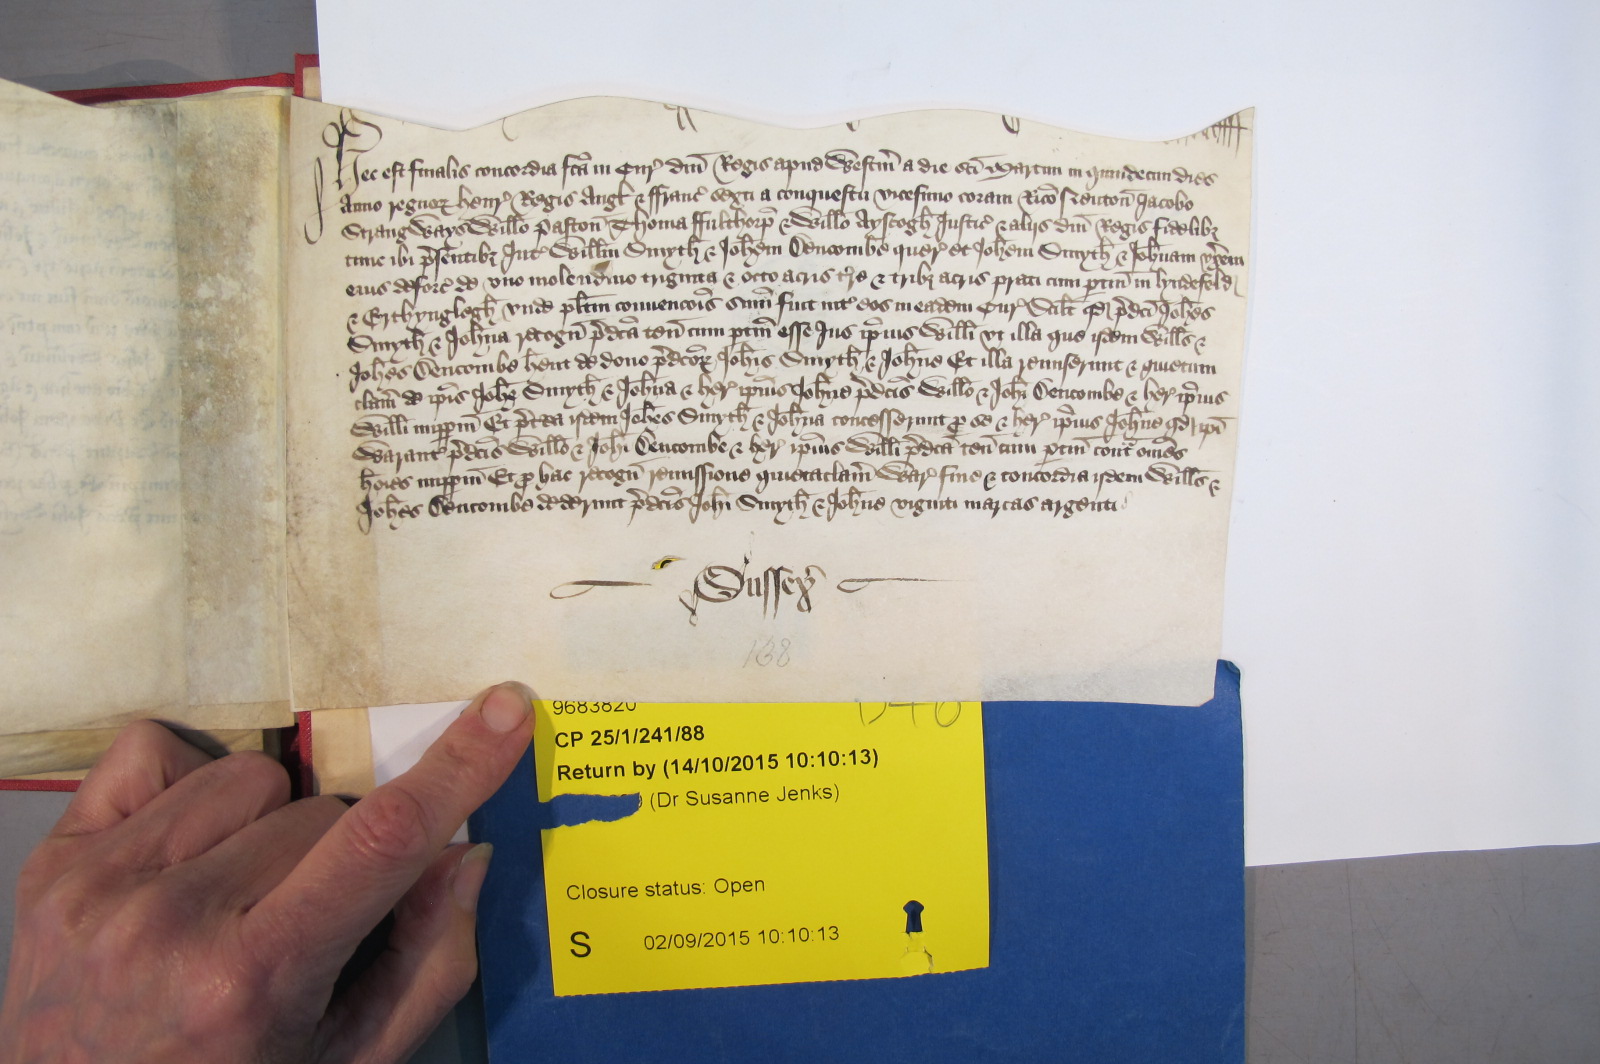 Hec est finalis concordia fca in Cur dni Regis apud Westm a die sci Martini in quindecim dies
Anno regnor Henr Regis Angl & ffranc sexti a conquestu vicesimo coram Rico Neuton Jacobo
Strangways Willo Paston Thoma ffulthorp & Willo Ayscogh Justic & alijs dni Regis fidelibz
tunc ibi psentibz Int Willm Smyth & Johem Cencombe quer et Johem Smyth & Johnam vxem
eius deforc de vno molendino triginta & octo acris tre & tribz acris prati cum ptin in Lyndefeld
& Erthynglegh vnde plitm convencois sum fuit int eos in eadem Cur Scilt qd pdci Johes
Smyth & Johna recogn pdca ten cum ptin esse Jus ipius Willi vt illa que idem Wills &
Johes Cencombe hent de dono pdcor Johis Smyth & Johne Et illa remiserunt & quietum
clam de ipis Johe Smyth & Johna & her ipius Johne pdcis Willo & Johi Cencombe & her ipius
Willi imppm Et pterea idem Johes Smyth & Johna concesserunt p se & her ipius Johne qd ipi
Warant pdcis Willo & Johi Cencombe & her ipius Willi pdca ten cum ptin cont omes
hoies imppm Et p hac recogn remissione quietaclam War fine & concordia idem Wills &
Johes Cencombe dederunt pdcis Johi Smyth & Johne viginti marcas argenti
Sussex
138
9683820
CP 25/1/241/88
Return by (14/10/2015 10:10:13)
(Dr Susanne Jenks)
Closure status: Open
S 02/09/2015 10:10:13